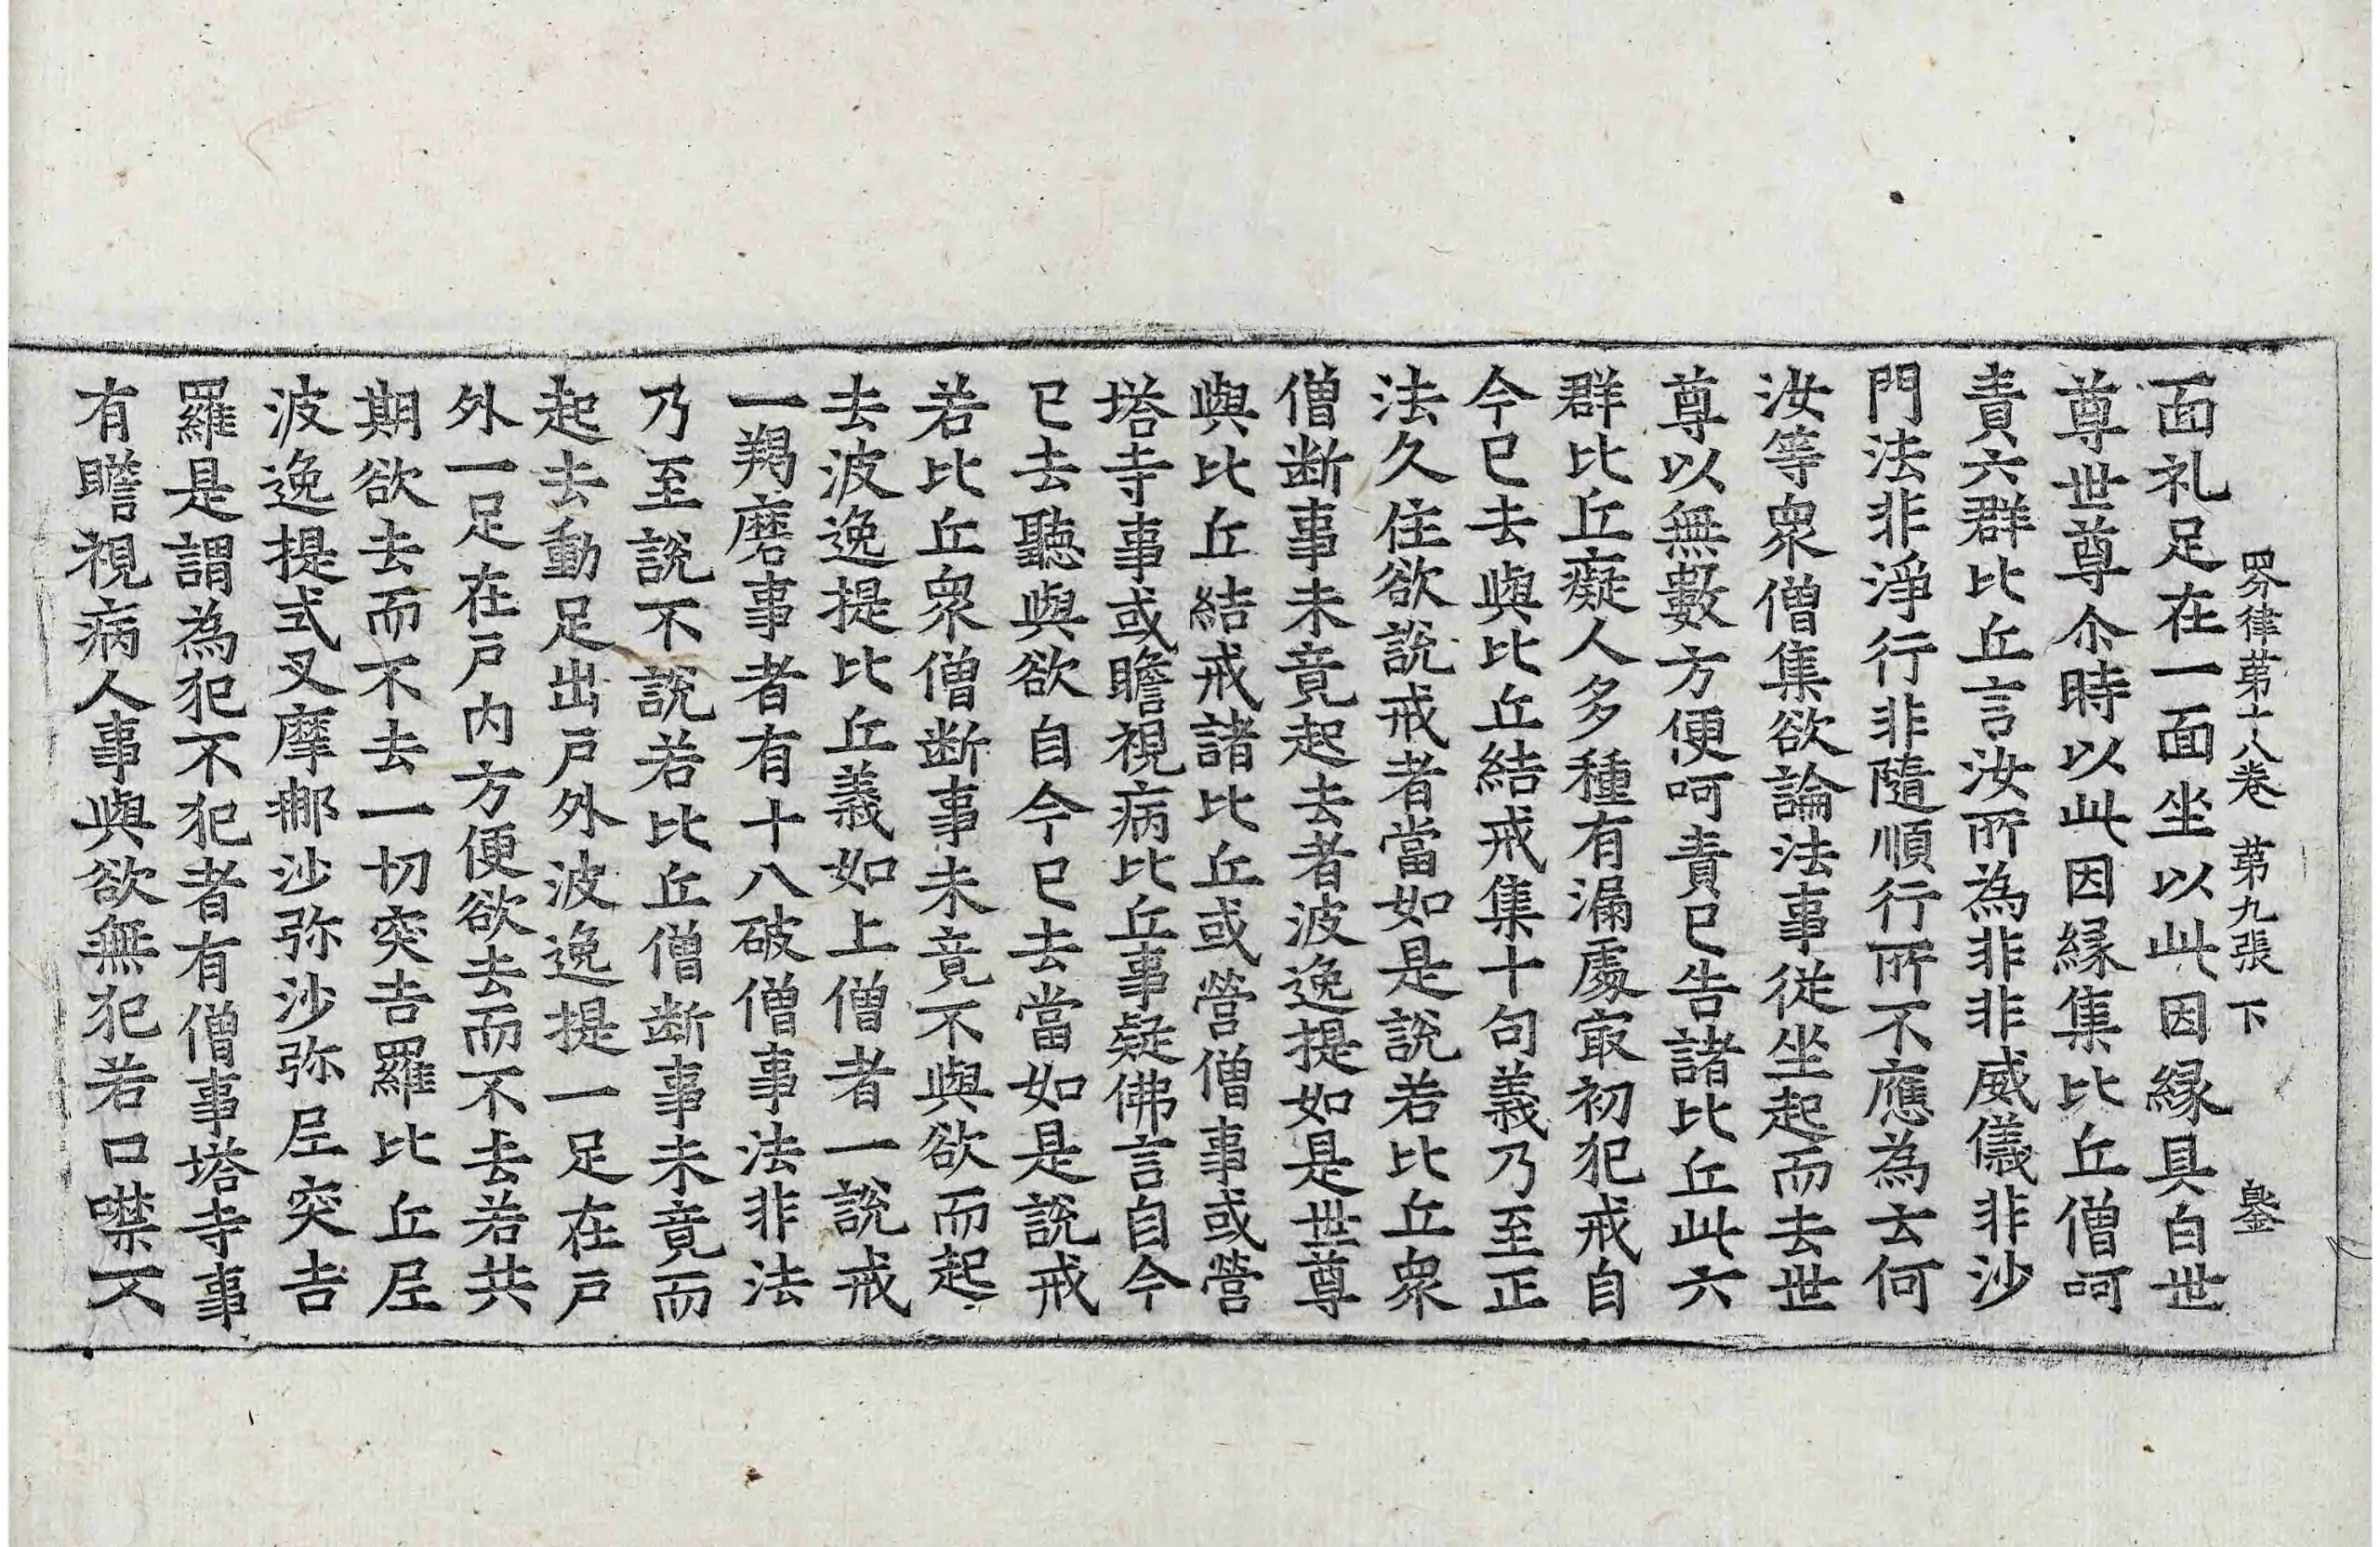 四分律第十八卷 第九張 下
面礼足在一面坐以此因縁具白世
尊世尊尒時以此因縁集比丘僧呵
責六群比丘言汝所為非非威儀非沙
門法非淨行非隨順行所不應為云何
汝等衆僧集欲論法事従坐起而去世
尊以無數方便呵責已告諸比丘此六
群比丘癡人多種有漏處冣初犯戒自
今已去與比丘結戒集十句義乃至正
法久住欲說戒者當如是說若比丘衆
僧断事未竟起去者波逸提如是世尊
與比丘結戒諸比丘或營僧事或營
塔寺事或瞻視病比丘事疑佛言自今
已去聽與欲自今已去當如是說戒
若比丘衆僧断事未竟不與欲而起
去波逸提比丘義如上僧者一說戒
一羯磨事者有十八破僧事法非法
乃至說不說若比丘僧断事未竟而
起去動足出戸外波逸提一足在戸
外一足在戸内方便欲去而不去若共
期欲去而不去一切突吉羅比丘尼
波逸提式叉摩那沙弥沙弥尼突吉
羅是謂為犯不犯者有僧事塔寺事
有瞻視病人事與欲無犯若口噤不